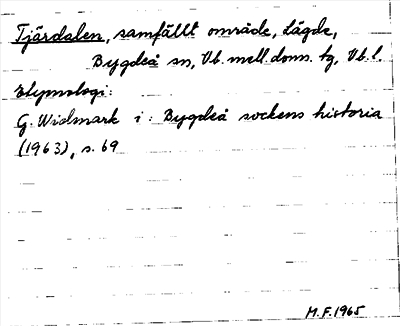 Tjärdalen, samfällt område, Lägde,
Bygdeå sn, Vb. mell. doms. tg, Vb. l.
Etymologi:
G. Widmark i: Bygdeå sockens historia
(1963), s. 69
M.F. 1965